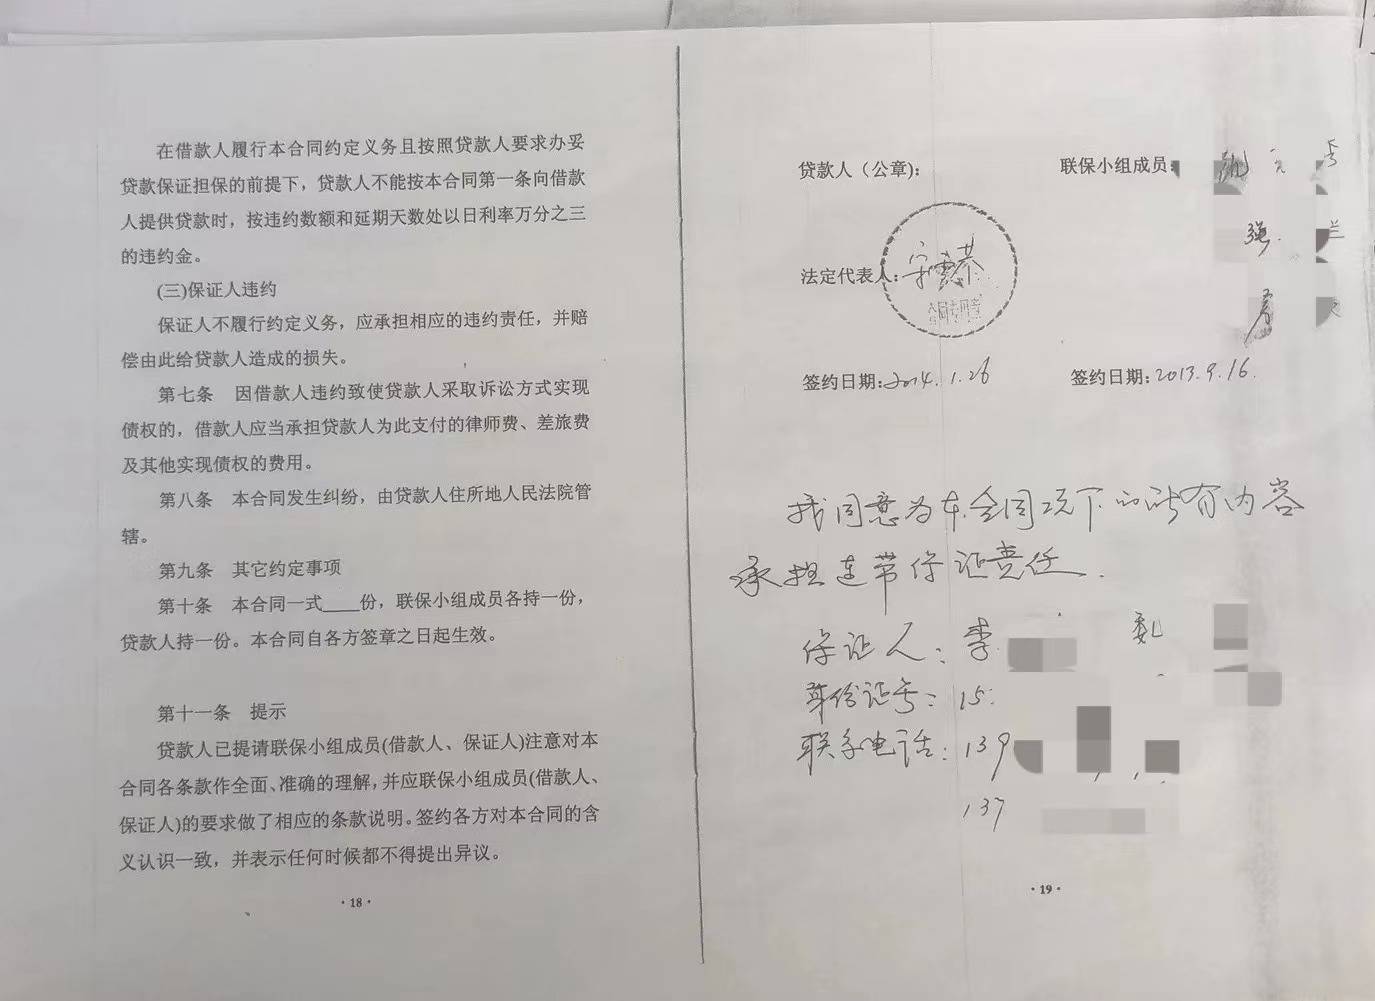 在借款人履行本合同约定义务且按照贷款人要求办妥
贷款保证担保的前提下，贷款人不能按本合同第一条向借款
人提供贷款时，按违约数额和延期天数处以日利率万分之三
的违约金。
(三)保证人违约
保证人不履行约定义务，应承担相应的违约责任，并赔
偿由此给贷款人造成的损失。
第七条 因借款人违约致使贷款人采取诉讼方式实现
债权的，借款人应当承担贷款人为此支付的律师费、差旅费
及其他实现债权的费用。
第八条 本合同发生纠纷，由贷款人住所地人民法院管
辖。
第九条 其它约定事项
第十条 本合同一式____份，联保小组成员各持一份，
贷款人持一份。本合同自各方签章之日起生效。
第十一条 提示
贷款人已提请联保小组成员(借款人、保证人)注意对本
合同各条款作全面、准确的理解，并应联保小组成员(借款人、
保证人)的要求做了相应的条款说明。签约各方对本合同的含
义认识一致，并表示任何时候都不得提出异议。
·18·
贷款人（公章）：
联保小组成员：
强
兰
法定代表人：
合同专用章
签约日期：2014.1.26
签约日期：2013.9.16.
我同意为本合同项下的所有内容
承担连带保证责任.
保证人：李 魏
身份证号：15
联系电话：139
137
·19·